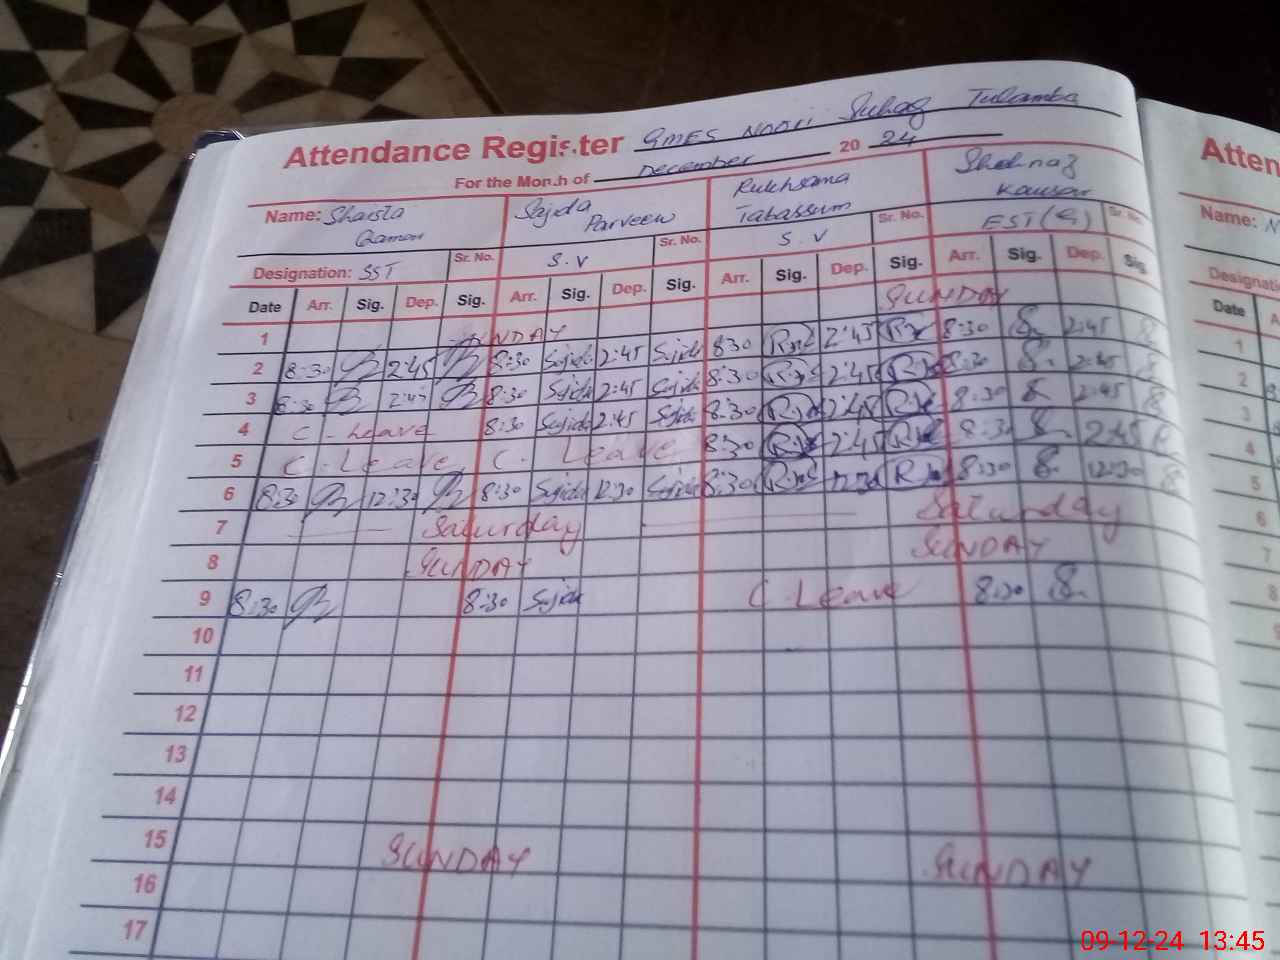 Attendance Register GMES NOORI Suhag Tulamba
For the Month of December 20 24
Name: Shaista Qamar Sajida Parveen Rukhsana Tabassum Shahnaz Kausar
Designation: SST Sr. No. S.V Sr. No. S.V Sr. No. EST(G) Sr. No.
Date Arr. Sig. Dep. Sig. Arr. Sig. Dep. Sig. Arr. Sig. Dep. Sig. Arr. Sig. Dep. Sig.
1 SUNDAY SUNDAY
2 8:30 2:45 8:30 Sajida 2:45 Sajida 8:30 2:45 8:30 2:45
3 8:30 2:45 8:30 Sajida 2:45 Sajida 8:30 2:45 8:30 2:45
4 C-Leave 8:30 Sajida 2:45 Sajida 8:30 2:45 8:30 2:45
5 C.Leave C. Leave 8:30 2:45 8:30 2:45
6 8:30 12:30 8:30 Sajida 12:30 Sajida 8:30 12:30 8:30 12:30
7 Saturday Saturday
8 SUNDAY SUNDAY
9 8:30 8:30 Sajida C.Leave 8:30
10
11
12
13
14
15 SUNDAY SUNDAY
16
17
Atten
Name: N
Designati
Date A
1
2
3
4
5
6
7
8
09-12-24 13:45